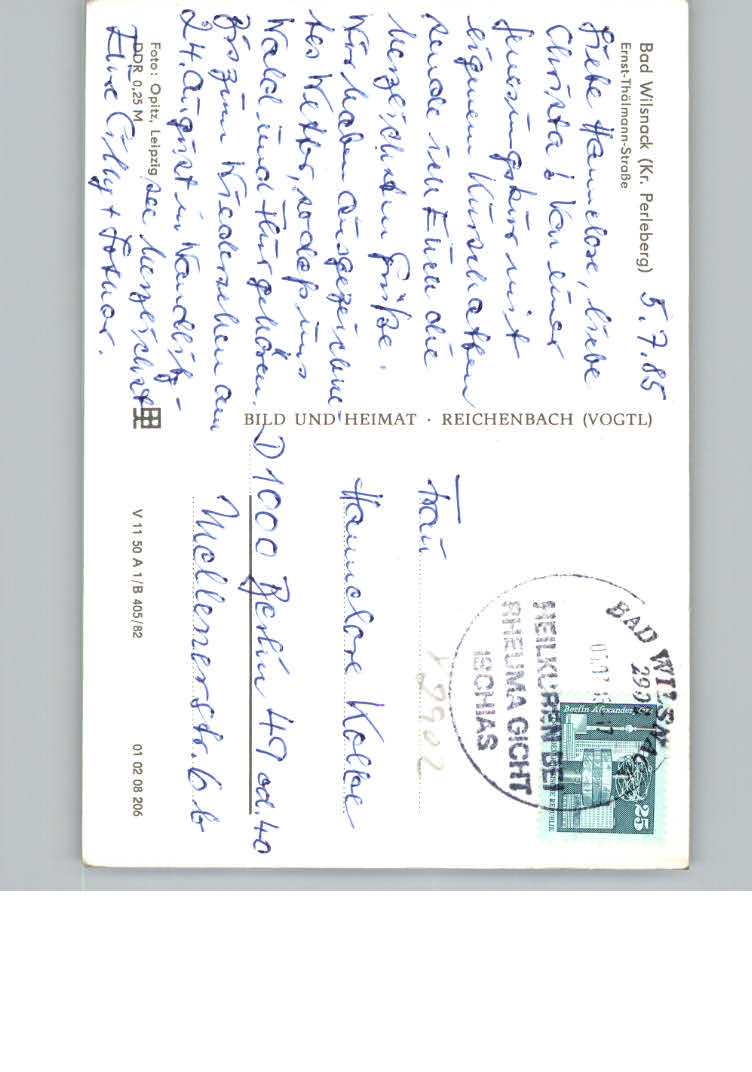 Bad Wilsnack (Kr. Perleberg)
Ernst-Thälmann-Straße
5.7.85
Liebe Hannelore, liebe
Christa! Von einer
Genesungskur mit
eignem Kurschatten
sende ich Euch die
herzlichsten Grüße.
Wir haben ausgezeichne-
tes Wetter, sodaß uns
Wald und Flur gehören.
Bis zum Wiedersehen am
24. August in Wandlitz-
see herzlichst
Eure Cilly + Lothar.
Foto: Opitz, Leipzig
DDR 0,25 M
BILD UND HEIMAT · REICHENBACH (VOGTL)
V 11 50 A 1/B 405/82
01 02 08 206
Frau
Hannelore Kolbe
D 1000 Berlin 49 od. 40
Mellenerstr. 6 b
Y 2902
BAD WILSNACK
HEILKUREN BEI
RHEUMA GICHT
ISCHIAS
Berlin Alexander
25